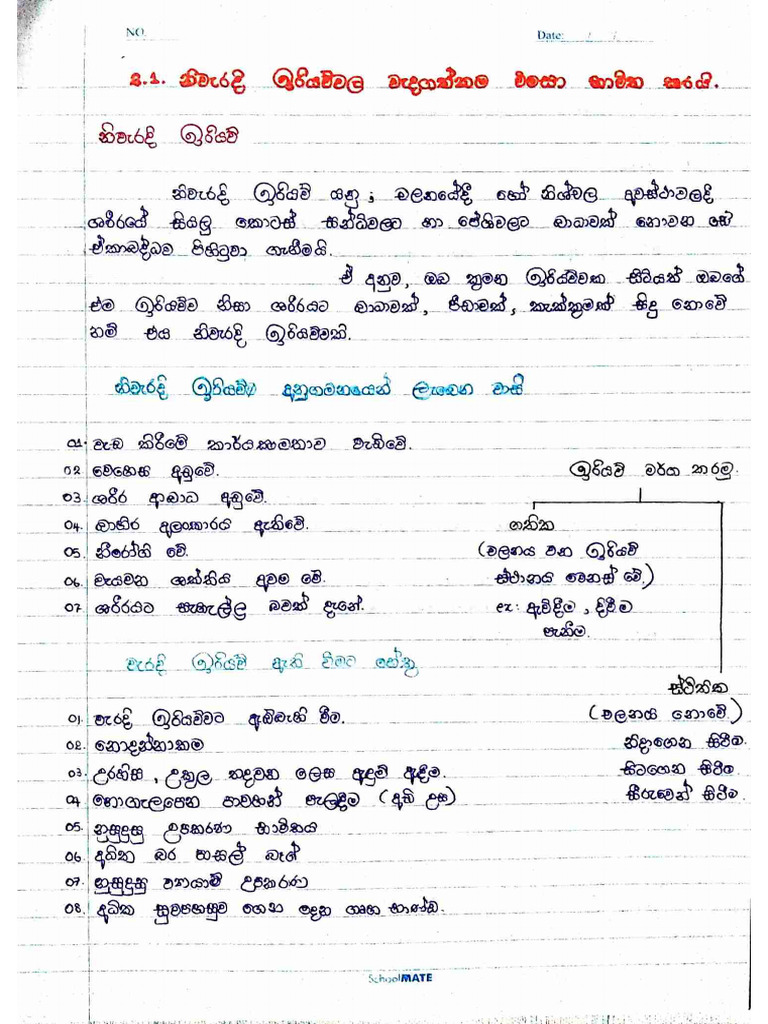 NO. Date: / /
2.1. නිවැරදි ඉරියව්වල වැදගත්කම විමසා භාවිත කරයි.
නිවැරදි ඉරියව්
නිවැරදි ඉරියව් යනු ; චලනයේදී හෝ නිශ්චල අවස්ථාවලදී
ශරීරයේ සියලු කොටස් සන්ධිවලට හා පේශිවලට බාධාවක් නොවන සේ
ඒකාබද්ධව පිහිටුවා ගැනීමයි.
ඒ අනුව, ඔබ කුමන ඉරියව්වක සිටියත් ඔබගේ
එම ඉරියව්ව නිසා ශරීරයට බාධාවක්, පීඩාවක්, කැක්කුමක් සිදු නොවේ
නම් එය නිවැරදි ඉරියව්වකි.
නිවැරදි ඉරියව් අනුගමනයෙන් ලැබෙන වාසි
01. වැඩ කිරීමේ කාර්යක්ෂමතාව වැඩිවේ.
02 වෙහෙස අඩුවේ.
03. ශරීර ආබාධ අඩුවේ.
04. බාහිර අලංකාරය ඇතිවේ.
05. නීරෝගි වේ.
06. වැයවන ශක්තිය අවම වේ.
07. ශරීරයට සැහැල්ලු බවක් දැනේ.
ඉරියව් වර්ග කරමු.
ගතික
(චලනය වන ඉරියව්
ස්ථානය වෙනස් වේ.)
ex: ඇවිදීම , දිවීම
පැනීම.
ස්ථිතික
(චලනය නොවේ.)
නිදාගෙන සිටීම.
සිටගෙන සිටීම
සීරුවෙන් සිටීම.
වැරදි ඉරියව් ඇති වීමට හේතු
01. වැරදි ඉරියව්වට ඇබ්බැහි වීම.
02. නොදන්නාකම
03. උරහිස , උකුල තදවන ලෙස ඇඳුම් ඇඳීම.
04 නොගැලපෙන පාවහන් පැලඳීම (අඩි උස)
05. නුසුදුසු උපකරණ භාවිතය
06. අධික බර පාසල් බෑග්
07. නුසුදුසු ව්‍යායාම් උපකරණ
08. අධික සුවපහසුව ගෙන දෙන ගෘහ භාණ්ඩ.
SchoolMATE